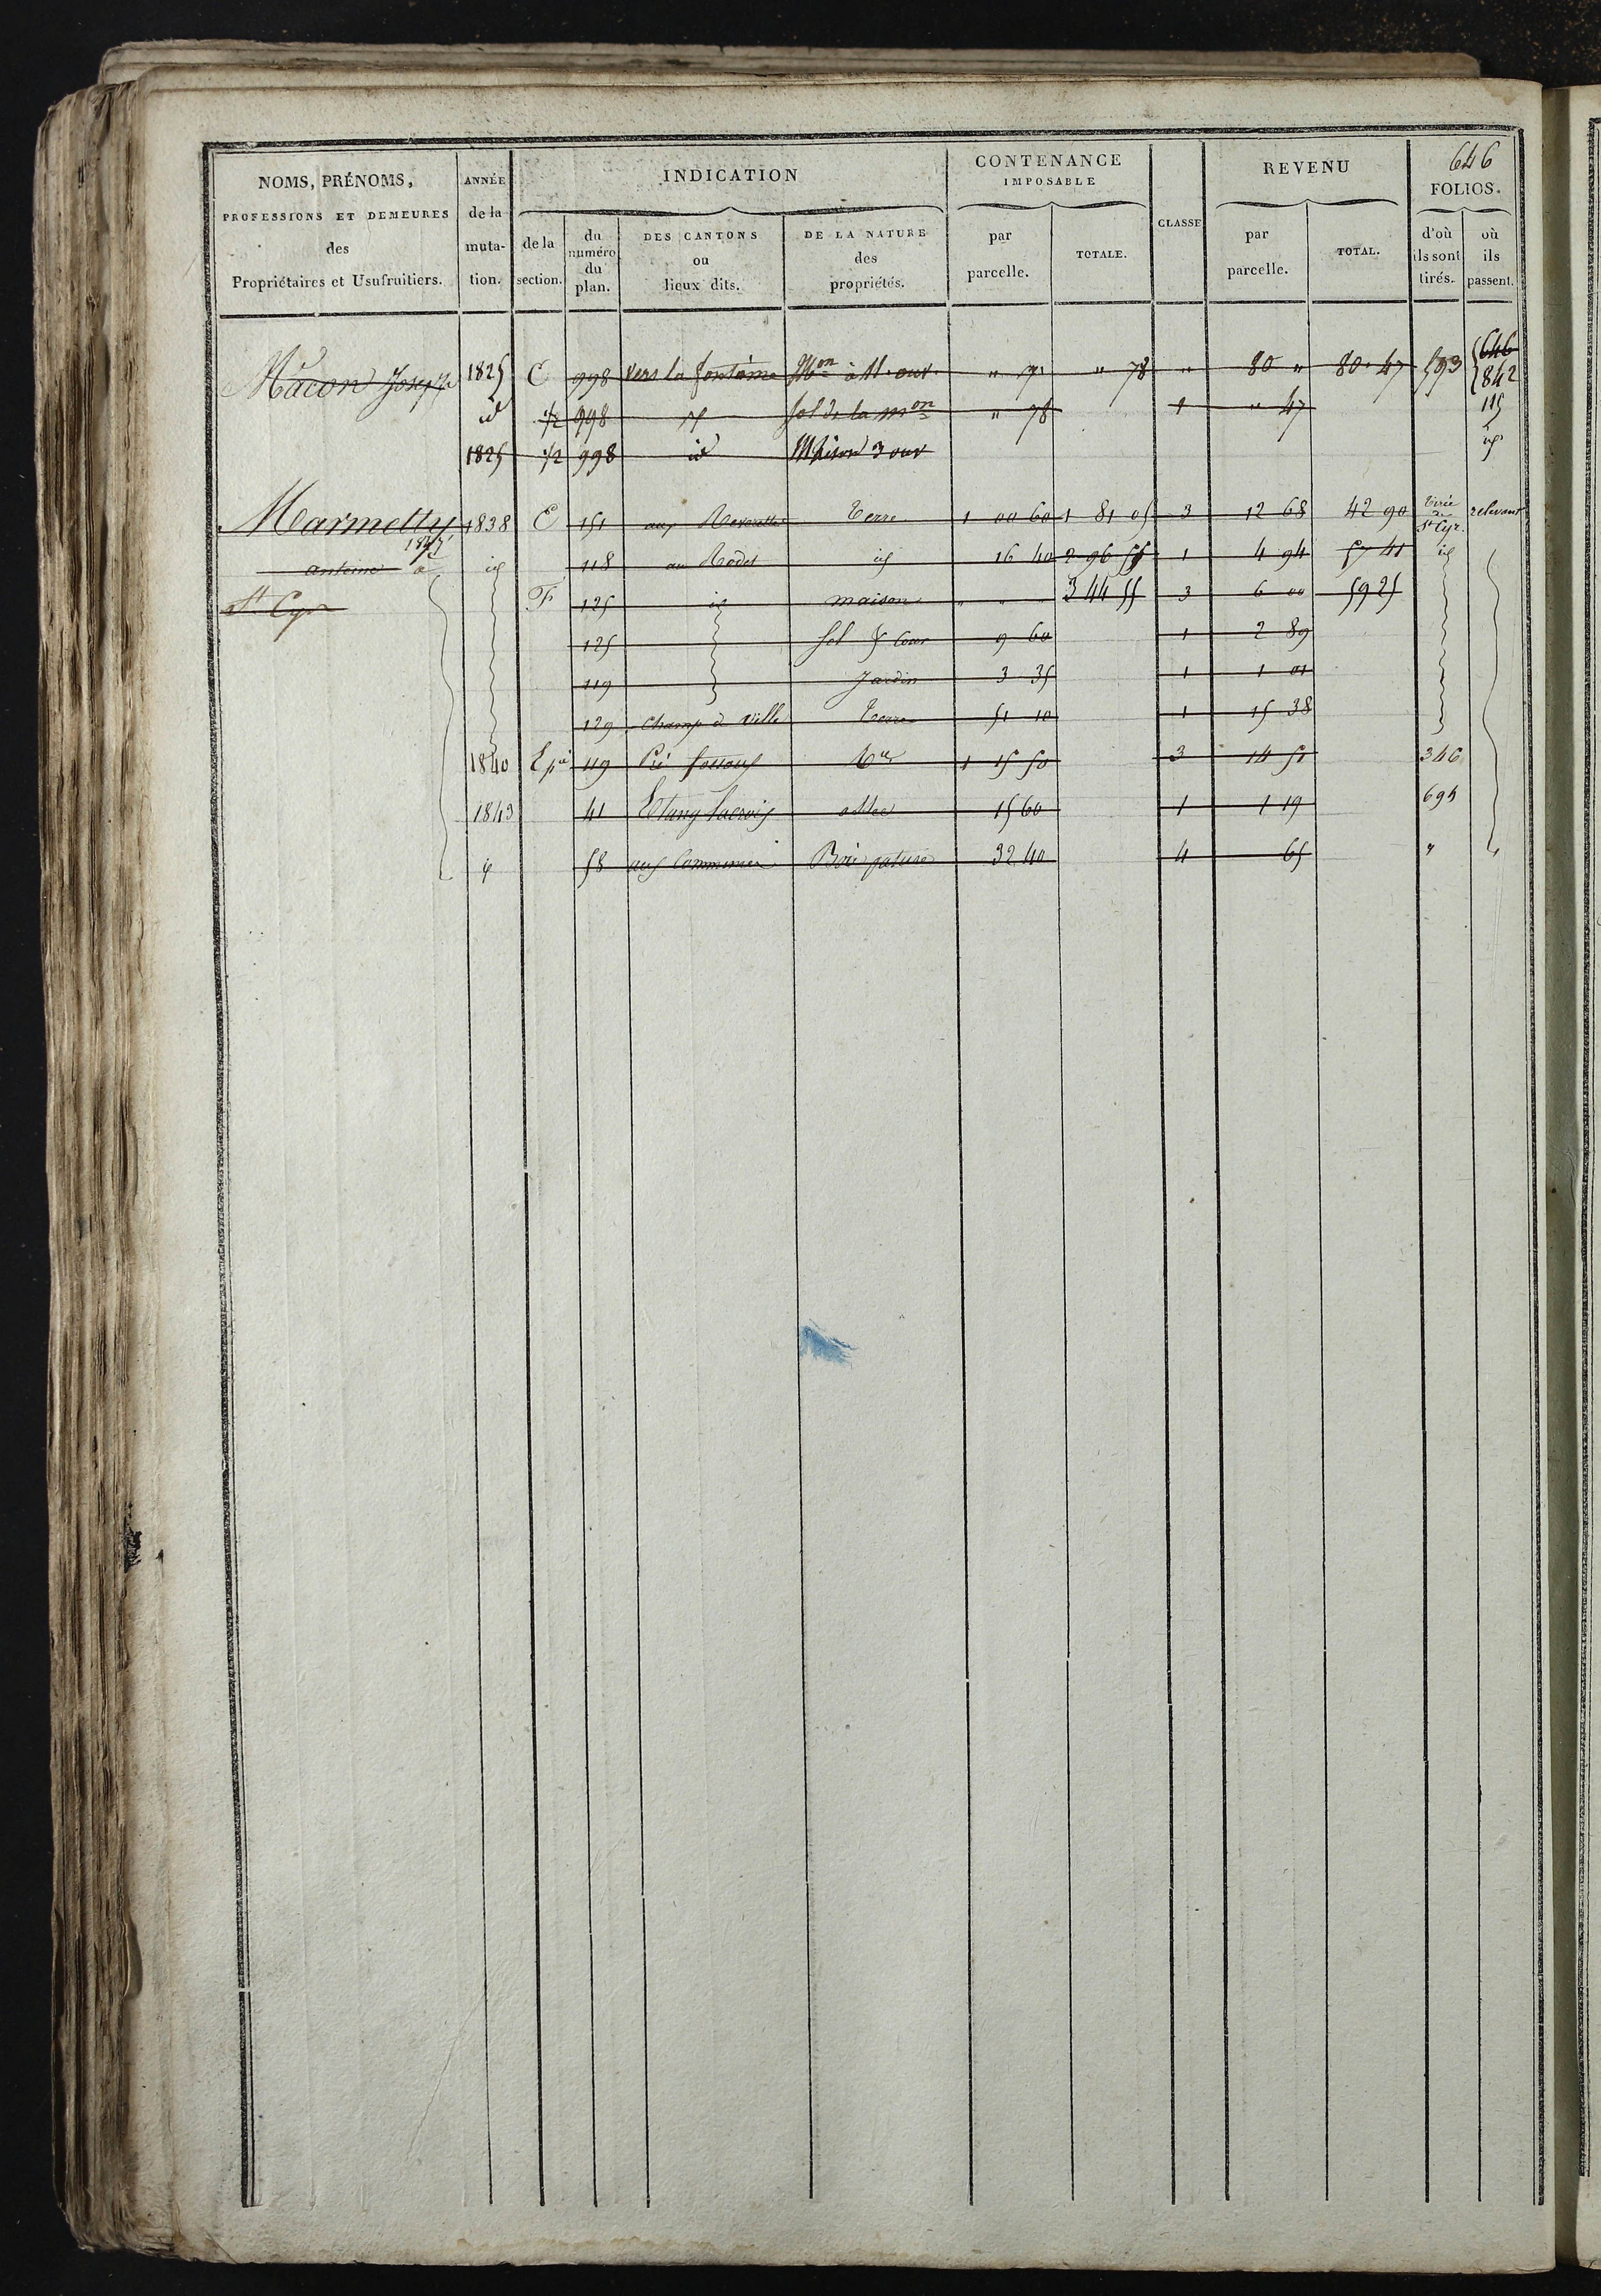 646
NOMS, PRÉNOMS, ANNÉE INDICATION CONTENANCE IMPOSABLE CLASSE REVENU FOLIOS.
PROFESSIONS ET DEMEURES des Propriétaires et Usufruitiers. de la mutation. de la section. du numéro du plan. DES CANTONS ou lieux dits. DE LA NATURE des propriétés. par parcelle. TOTALE. par parcelle. TOTAL. d'où ils sont tirés. où ils passent.
Mâcon Joseph 1825 C 998 vers la fontaine Mon à 11 ouv. " " 78 " 80 " 80 47 593 646 842
id 1/2 998 id Sol de la mon " 78 1 " 47 115
1825 1/2 998 id Maison 3 ouv id
Marmetty 1838 E 151 aux Terre 1 00 60 1 81 05 3 12 68 42 90 St Cyr. relevant
antoine à 1847 id 118 au Rodet id 16 40 2 96 55 1 4 94 57 41 id
St Cyr F 125 id maison " " " 3 44 55 3 6 00 59 25
125 Sol & Cour 9 60 1 2 89
119 Jardin 3 35 1 1 01
129 Champ de ville Terre 51 10 1 15 38
1840 119 Pré 1 15 50 3 14 51 346
1843 41 Etang Lacroix 15 60 1 1 19 695
id 58 aux Communes Bois pature 32 40 4 65 "